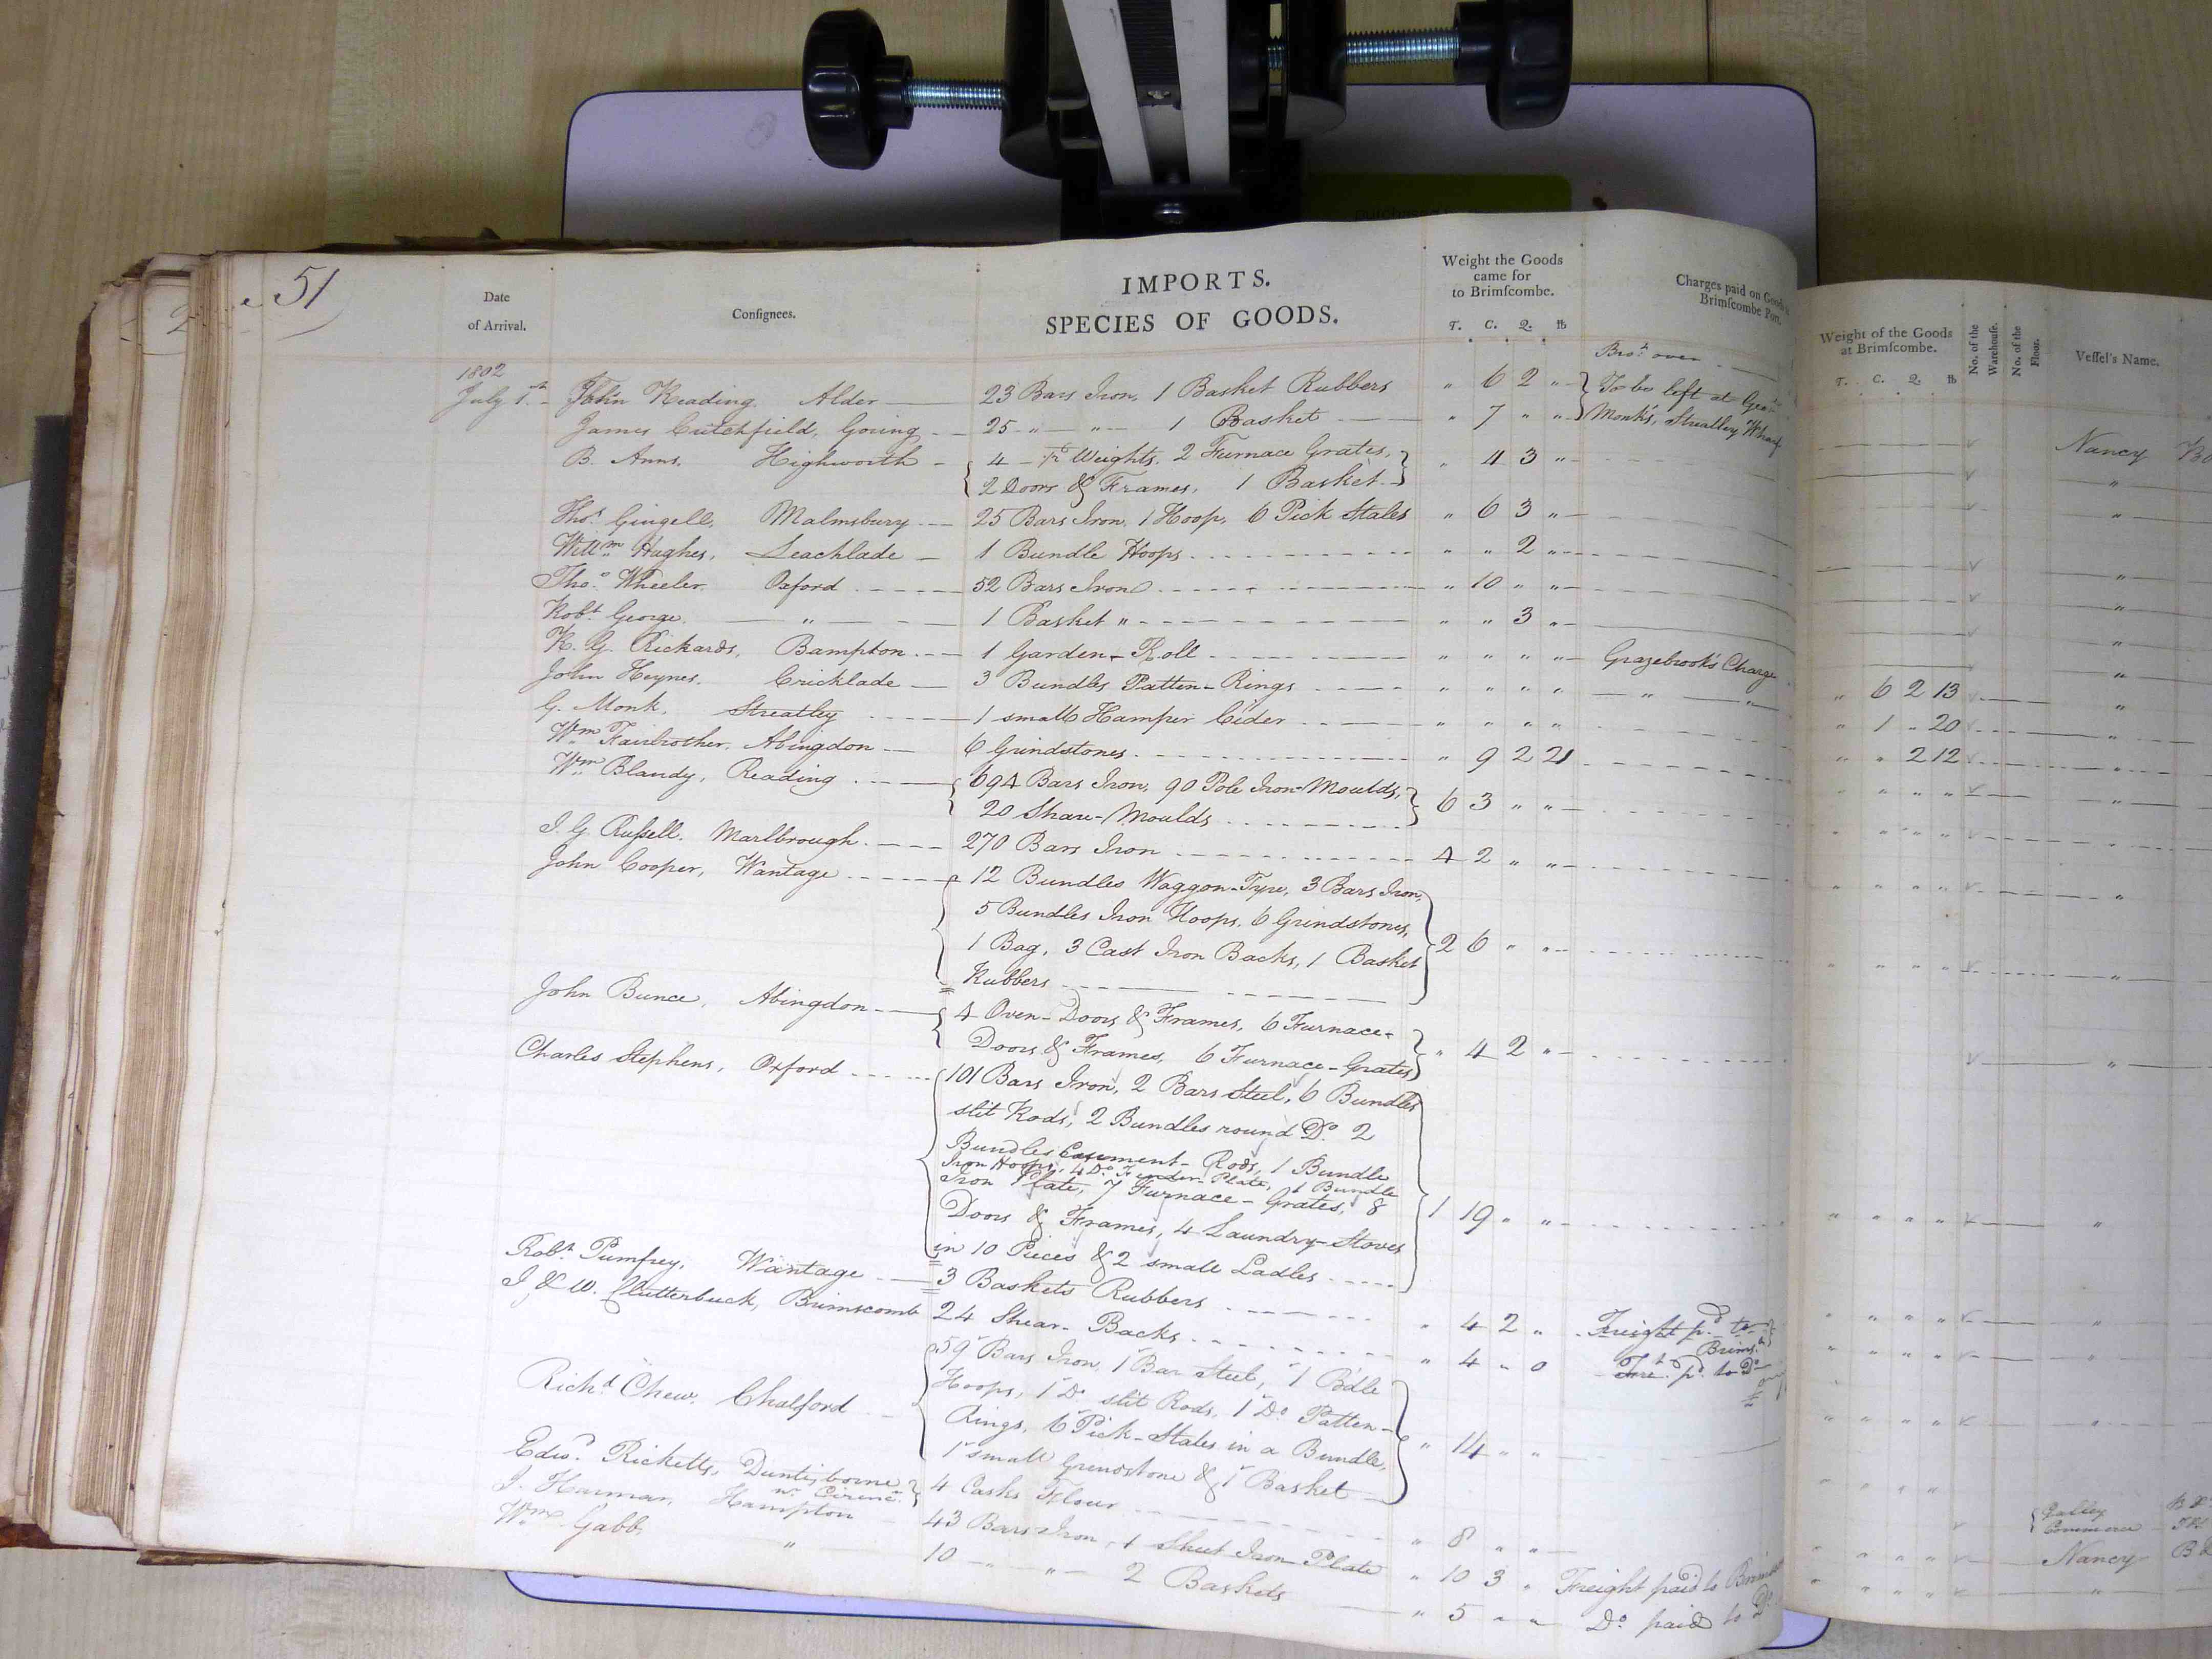 51
Date
of Arrival.
Consignees.
IMPORTS.
SPECIES OF GOODS.
Weight the Goods
came for
to Brimscombe.
T. C. Q. lb
Charges paid on Goods
Brimscombe Port.
Weight of the Goods
at Brimscombe.
T. C. Q. lb
No. of the
Warehouse.
No. of the
Floor.
Vessel's Name.
Brot over
1802
July 1st John Reading Alder 23 Bars Iron, 1 Basket Rubbers " 6 2 " To be left at Geo. Nancy
James Cutchfield, Goring 25 " " 1 Basket " 7 " " Monk's, Streatley Wharf "
B. Anns, Highworth 4 Weights, 2 Furnace Grates, " 4 3 " "
2 Doors & Frames, 1 Basket
Thos. Gingell, Malmsbury 25 Bars Iron, 1 Hoop, 6 Pick Stales " 6 3 " "
Willm Hughes, Leachlade 1 Bundle Hoops " " 2 " "
Thos. Wheeler, Oxford 52 Bars Iron " 10 " " "
Robt George, " 1 Basket " " " 3 " "
R. G. Rickards, Bampton 1 Garden-Roll " " " " Grazebrook's Charge " 6 2 13 "
John Heynes, Cricklade 3 Bundles Patten-Rings " " " " " " " 1 " 20 "
G. Monk, Streatley 1 small Hamper Cider " " " " " " 2 12 "
Wm Fairbrother, Abingdon 6 Grindstones " 9 2 21 " " " " "
Wm Blandy, Reading 694 Bars Iron, 90 Pole Iron-Moulds, 6 3 " " " " " "
20 Share-Moulds
J. G. Russell, Marlbrough 270 Bars Iron 4 2 " " " " " " "
John Cooper, Wantage 12 Bundles Waggon-Tyre, 3 Bars Iron,
5 Bundles Iron Hoops, 6 Grindstones, 2 6 " " " " " " "
1 Bag, 3 Cast Iron Backs, 1 Basket
Rubbers
John Bunce, Abingdon 4 Oven-Doors & Frames, 6 Furnace- " 4 2 " "
Doors & Frames, 6 Furnace-Grates
Charles Stephens, Oxford 101 Bars Iron, 2 Bars Steel, 6 Bundles
slit Rods, 2 Bundles round Do. 2
Bundles Casement-Rods, 1 Bundle
Iron Hoops, 4 Do. Fender-Plate, 1 Bundle
Iron Plate, 7 Furnace-Grates, 8 1 19 " " " " " " "
Doors & Frames, 4 Laundry-Stoves
in 10 Pieces & 2 small Ladles
Robt Pumfrey, Wantage 3 Baskets Rubbers " 4 2 " Freight pd to Brims. " " " " "
J. & W. Clutterbuck, Brimscomb 24 Shear-Backs " 4 " 0 Fre. pd to Do " " " " "
Richd Chew, Chalford 59 Bars Iron, 1 Bar Steel, 1 Bdle
Hoops, 1 Do. slit Rods, 1 Do. Patten-
Rings, 6 Pick-Stales in a Bundle, " 14 " " " " " " "
1 small Grindstone & 1 Basket
Edwd Ricketts, Duntisborne 4 Casks Flour " 8 " " " " " " Galley
nr Cirenc. Commerce
J. Harman, Hampton 43 Bars Iron, 1 Sheet Iron-Plate " 10 3 " Freight paid to " " " " Nancy
Wm Gabb, " 10 " " 2 Baskets " 5 " " Do. paid to Do " " " " "